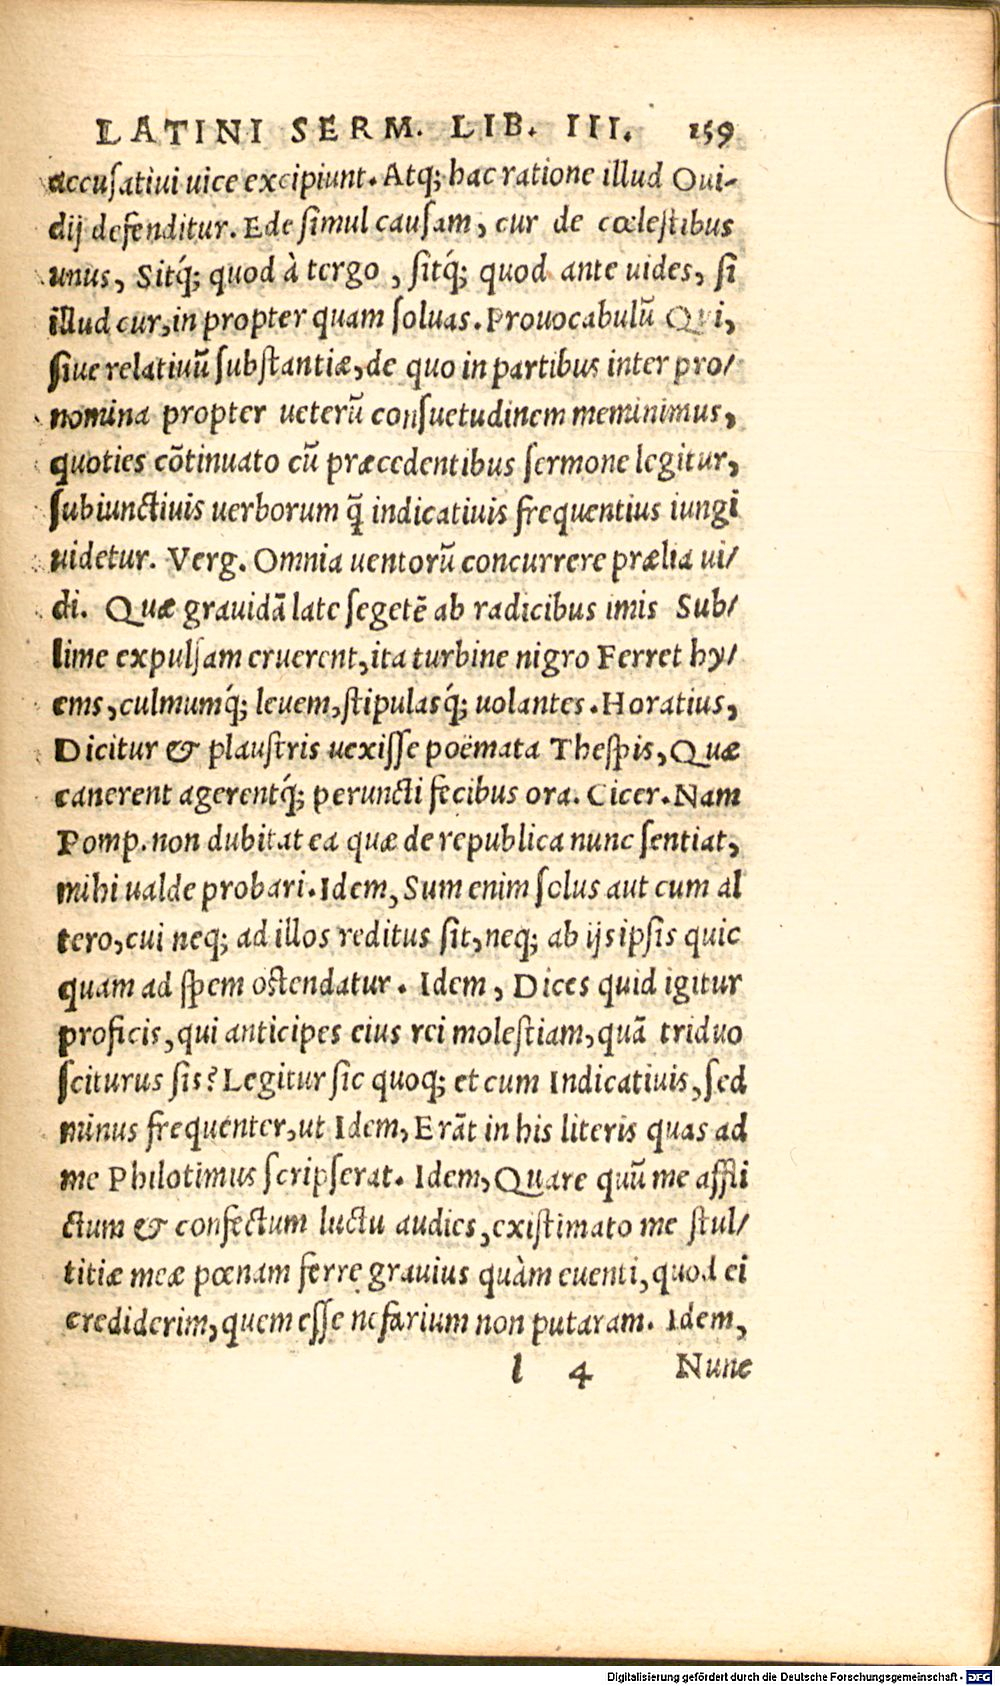 LATINI SERM. LIB. III. 159
accusativi uice excipiunt. Atq; hac ratione illud Oui-
dij defenditur. Ede simul causam, cur de cœlestibus
unus, Sitq́; quod à tergo, sitq́; quod ante uides, si
illud cur, in propter quam soluas. Prouocabulũ Qui,
siue relatiuũ substantiæ, de quo in partibus inter pro/
nomina propter ueterũ consuetudinem meminimus,
quoties cõtinuato cũ præcedentibus sermone legitur,
subiunctiuis uerborum q̃ indicatiuis frequentius iungi
uidetur. Verg. Omnia uentorũ concurrere prælia ui/
di. Quæ grauidã late segetẽ ab radicibus imis Sub/
lime expulsam eruerent, ita turbine nigro Ferret hy/
ems, culmumq́; leuem, stipulasq́; uolantes. Horatius,
Dicitur & plaustris uexisse poëmata Thespis, Quæ
canerent agerentq́; peruncti fecibus ora. Cicer. Nam
Pomp. non dubitat ea quæ de republica nunc sentiat,
mihi ualde probari. Idem, Sum enim solus aut cum al
tero, cui neq; ad illos reditus sit, neq; ab ijs ipsis quic
quam ad spem ostendatur. Idem, Dices quid igitur
proficis, qui anticipes eius rei molestiam, quã triduo
sciturus sis? Legitur sic quoq; et cum Indicatiuis, sed
minus frequenter, ut Idem, Erãt in his literis quas ad
me Philotimus scripserat. Idem, Quare quũ me affli
ctum & confectum luctu audies, existimato me stul/
titiæ meæ pœnam ferre grauius quàm euenti, quod ei
crediderim, quem esse nefarium non putaram. Idem,
l 4 Nunc
Digitalisierung gefördert durch die Deutsche Forschungsgemeinschaft - DFG